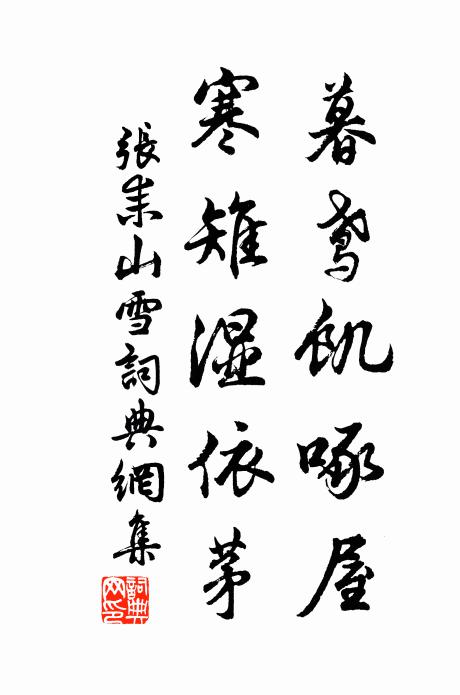 暮鳶飢啄屋
寒雉湿依茅
張耒山雪詞典網集
詞典网印